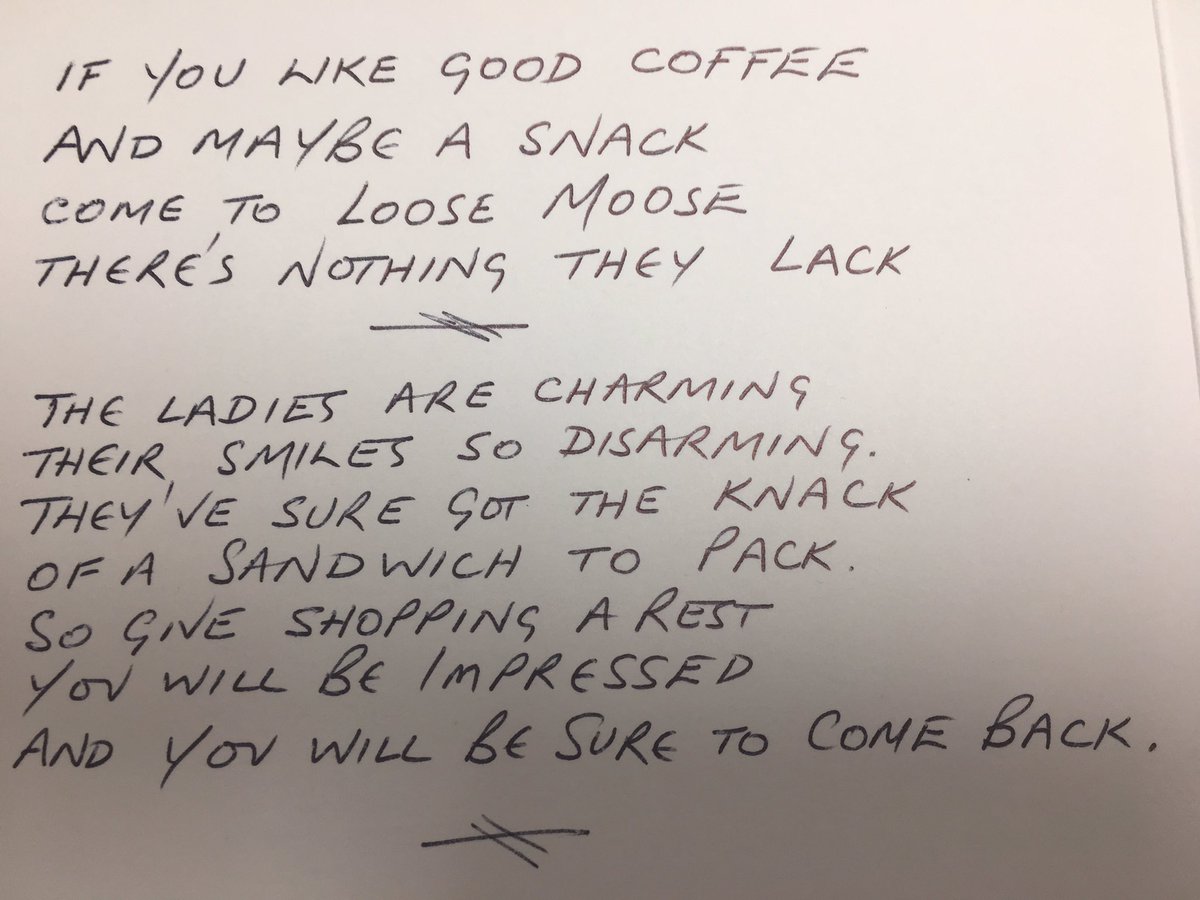 IF YOU LIKE GOOD COFFEE
AND MAYBE A SNACK
COME TO LOOSE MOOSE
THERE'S NOTHING THEY LACK
THE LADIES ARE CHARMING
THEIR SMILES SO DISARMING.
THEY'VE SURE GOT THE KNACK
OF A SANDWICH TO PACK.
SO GIVE SHOPPING A REST
YOU WILL BE IMPRESSED
AND YOU WILL BE SURE TO COME BACK.